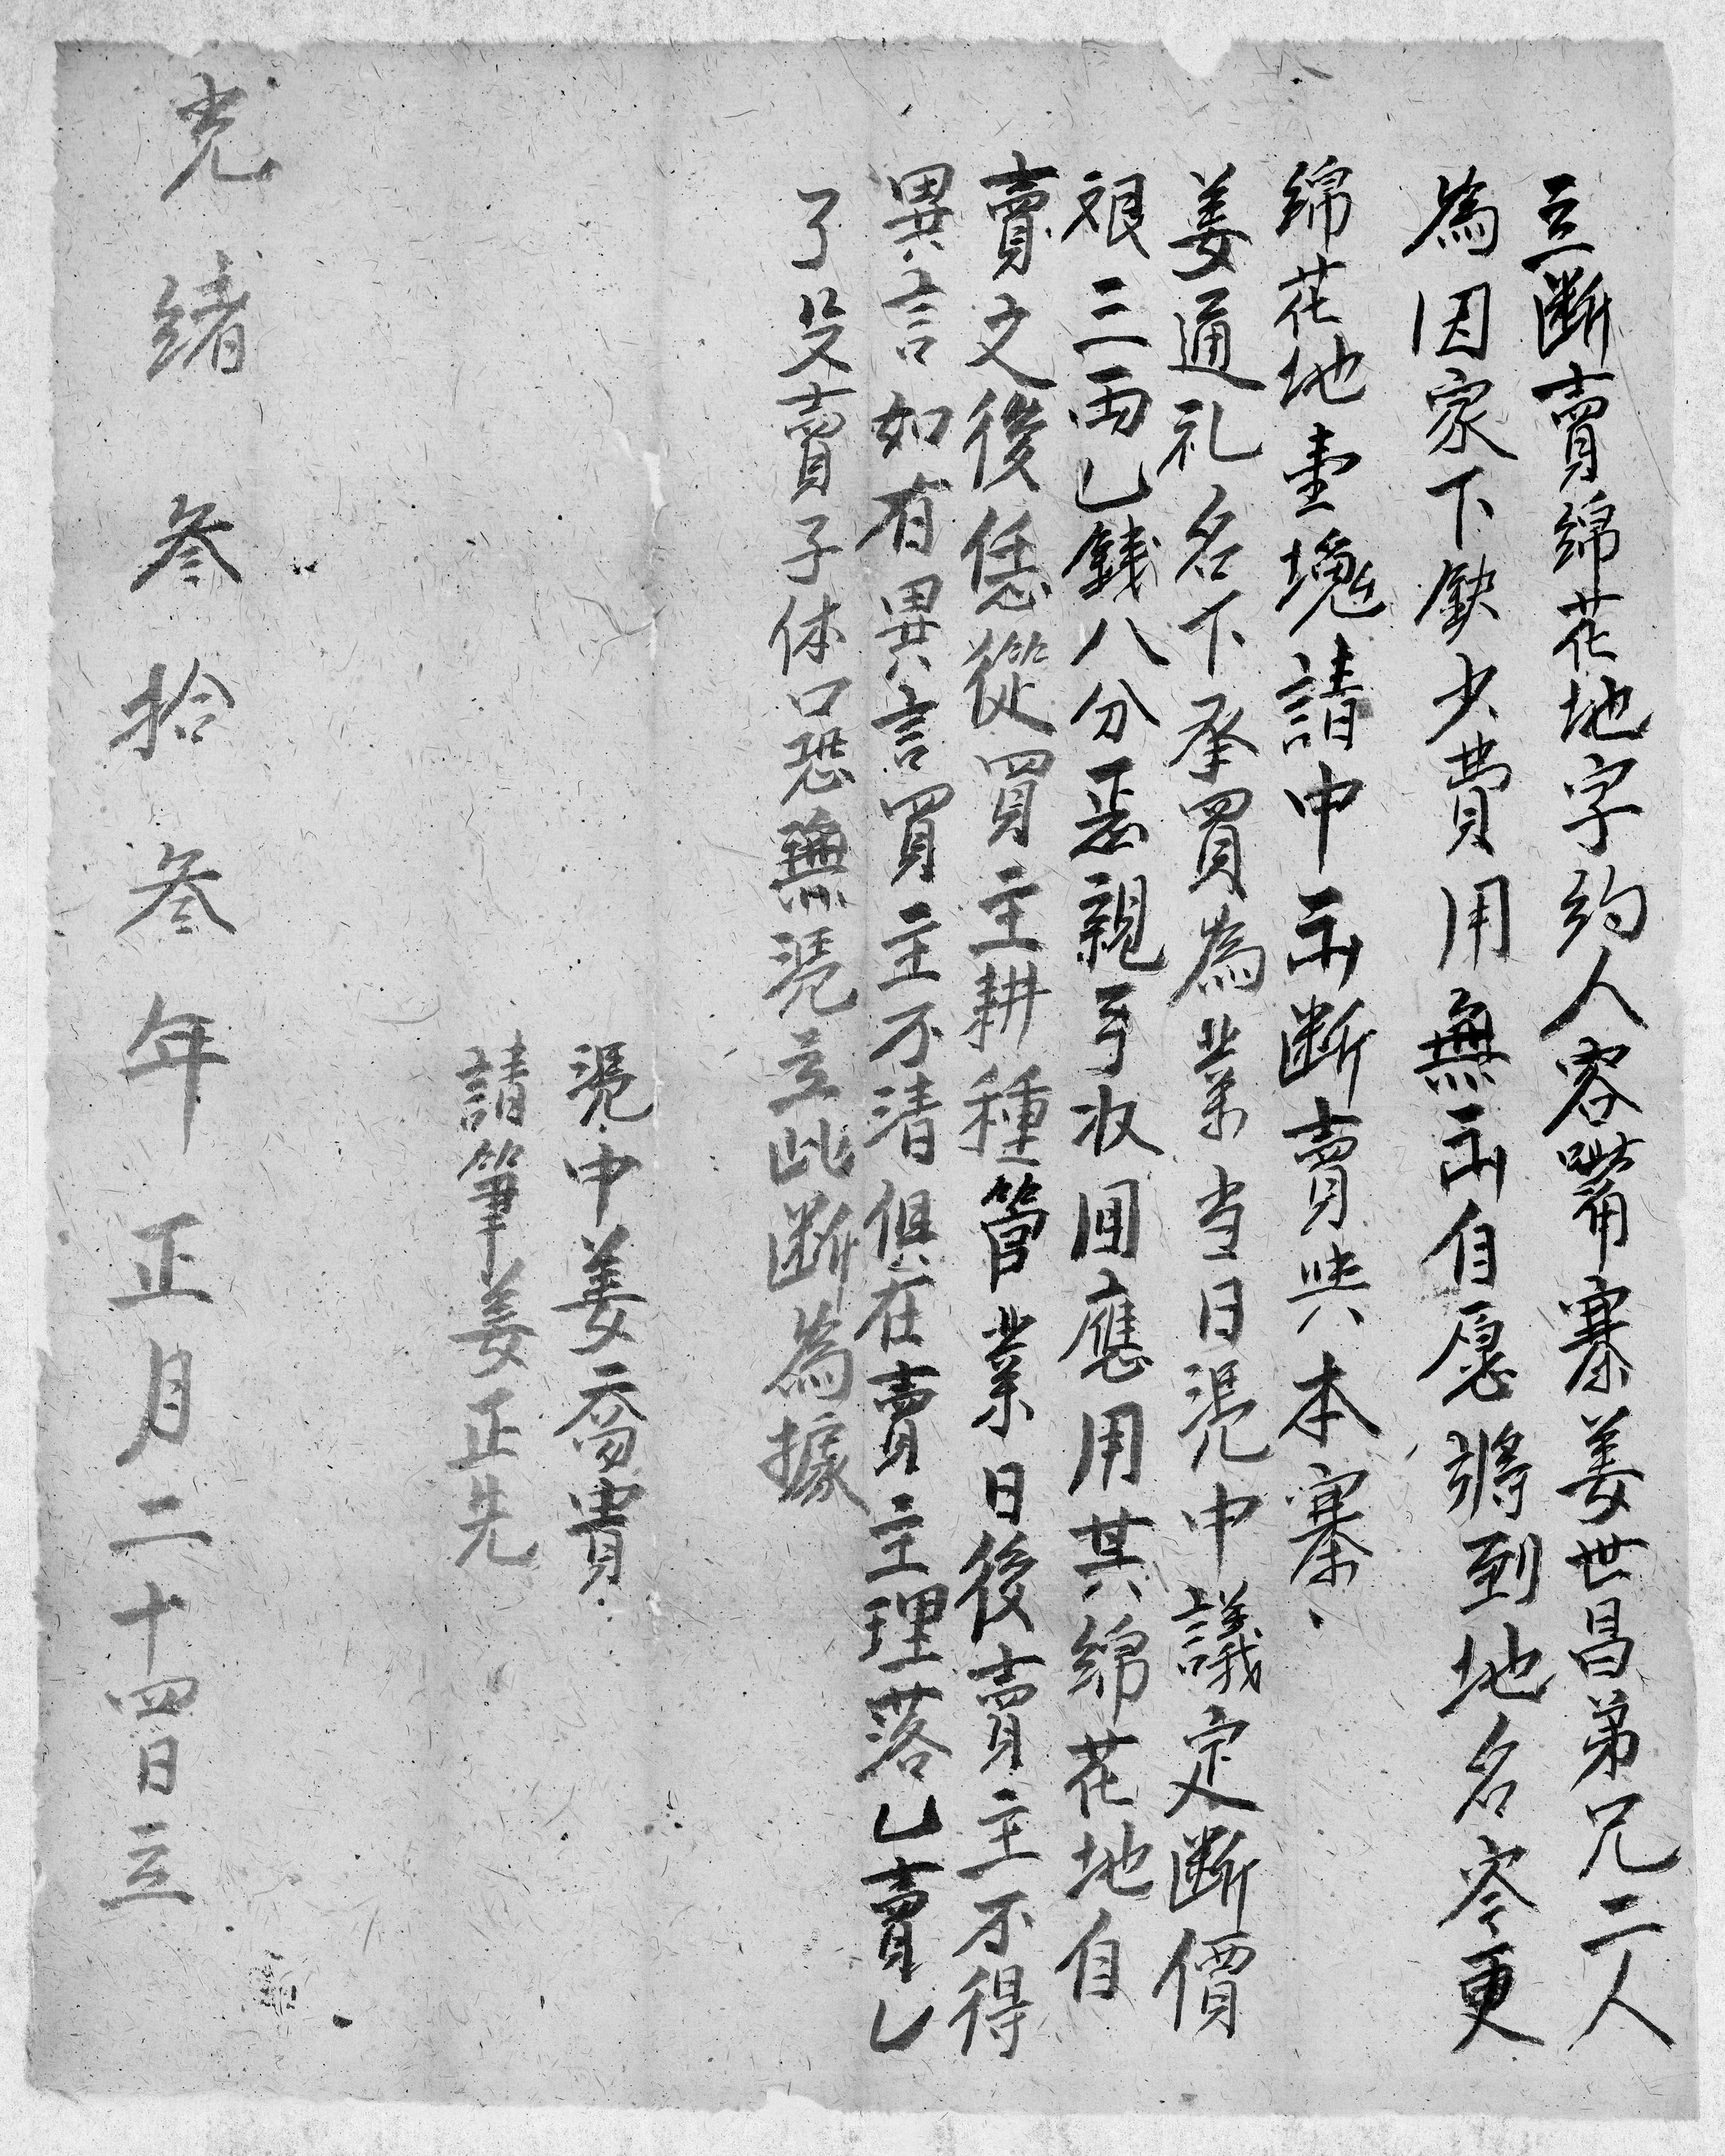 立断賣綿花地字約人容嘴寨姜世昌弟兄二人
為因家下缺少費用無出自愿將到地名岑更
綿花地壹塊請中出断賣與本寨、
姜通礼名下承買為業当日凴中議定断價
銀三两乙錢八分悉親手收囬應用其綿花地自
賣之後恁從買主耕種管業日後賣主不得
異言如有異言買主不清俱在賣主理落乙賣乙
了父賣子休口恐無凴立此断為據
凴中姜喬貴
請筆姜正先
光緒叁拾叁年正月二十四日立